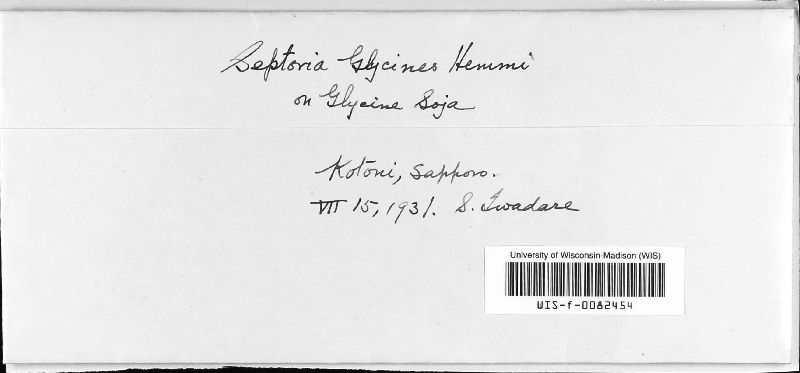 Septoria Glycines Hemmi
on Glycine Soja
Kotōni, Sapporo.
VII 15, 1931. S. Iwadare
University of Wisconsin-Madison (WIS)
WIS-f-0082454